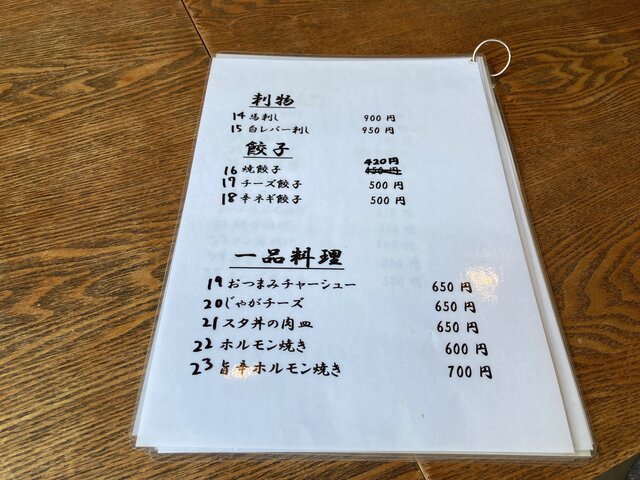 刺物
14 馬刺し 900 円
15 白レバー刺し 950 円
餃子
420円
16 焼餃子 450 円
17 チーズ餃子 500 円
18 辛ネギ餃子 500 円
一品料理
19 おつまみチャーシュー 650 円
20 じゃがチーズ 650 円
21 スタ丼の肉皿 650 円
22 ホルモン焼き 600 円
23 旨辛ホルモン焼き 700 円